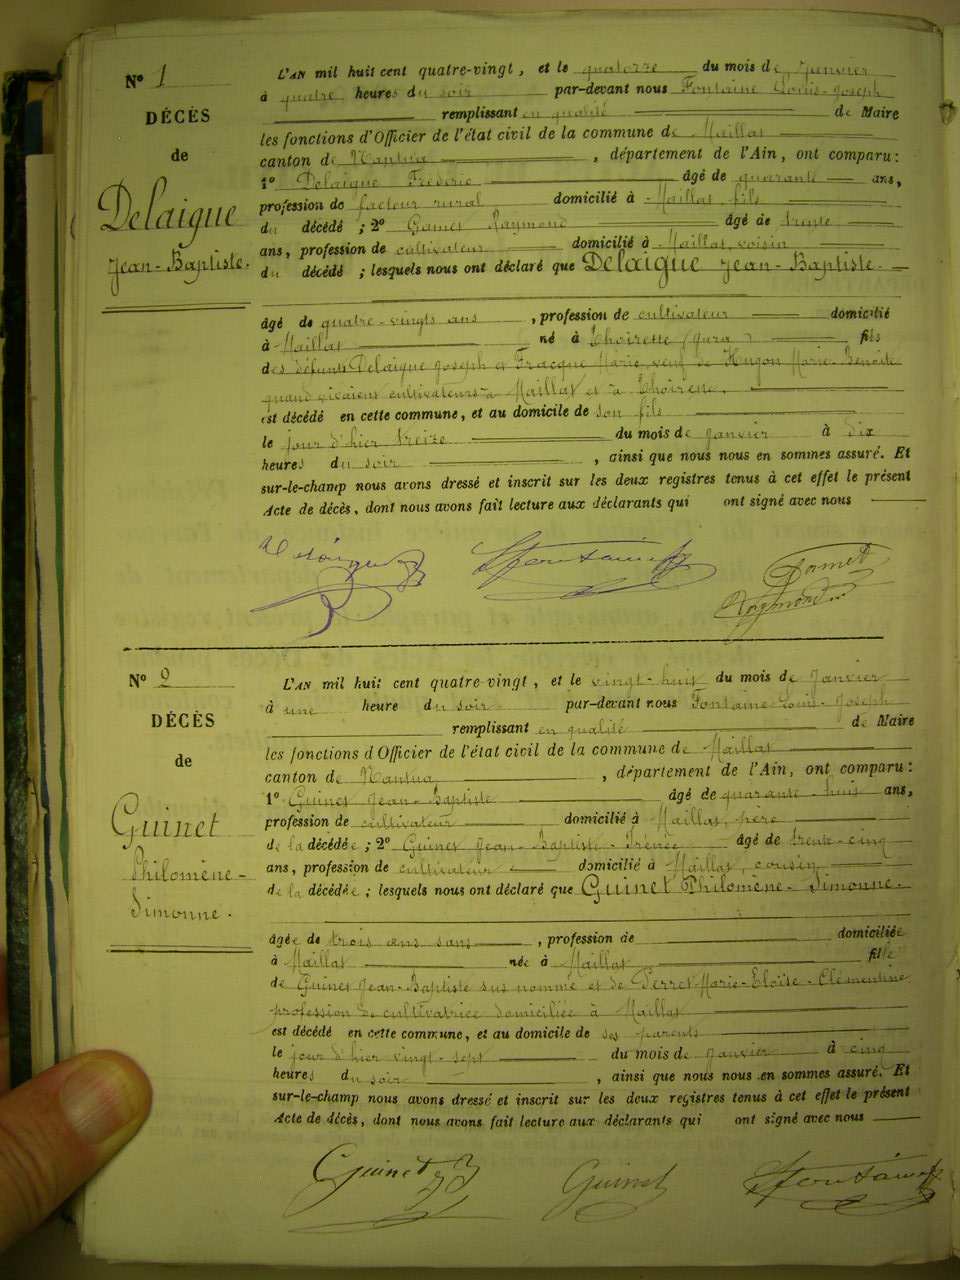 Nº 1
DÉCÈS
de
Delaigue
Jean-Baptiste.
L'AN mil huit cent quatre-vingt, et le quatorze du mois de Janvier
à quatre heures du soir par-devant nous Fontaine Louis-Joseph
remplissant en qualité de Maire
les fonctions d'Officier de l'état civil de la commune de Maillat
canton de Nantua, département de l'Ain, ont comparu:
1º Delaigue Frédéric âgé de quarante ans,
profession de facteur rural domicilié à Maillat, fils
du décédé; 2º Gamet Raymond âgé de trente
ans, profession de cultivateur domicilié à Maillat, voisin
du décédé; lesquels nous ont déclaré que Delaigue Jean-Baptiste.
âgé de quatre-vingts ans, profession de cultivateur domicilié
à Maillat né à Thoirette (Jura) fils
des défunts Delaigue Joseph et Marie, veuf de Hugon Marie-Benoîte
quand vivaient cultivateurs à Maillat et à Thoirette.
est décédé en cette commune, et au domicile de son fils
le jour d'hier treize du mois de Janvier à dix
heures du soir, ainsi que nous nous en sommes assuré. Et
sur-le-champ nous avons dressé et inscrit sur les deux registres tenus à cet effet le présent
Acte de décès, dont nous avons fait lecture aux déclarants qui ont signé avec nous
Delaigue Lfontaine Gamet
Raymond
Nº 2
DÉCÈS
de
Guinet
Philomène-
Simonne.
L'AN mil huit cent quatre-vingt, et le vingt-huit du mois de Janvier
à une heure du soir par-devant nous Fontaine Louis-Joseph
remplissant en qualité de Maire
les fonctions d'Officier de l'état civil de la commune de Maillat
canton de Nantua, département de l'Ain, ont comparu:
1º Guinet Jean-Baptiste âgé de quarante-huit ans,
profession de cultivateur domicilié à Maillat, père
de la décédée; 2º Guinet Jean-Baptiste-Irénée âgé de trente-cinq
ans, profession de cultivateur domicilié à Maillat, cousin
de la décédée; lesquels nous ont déclaré que Guinet Philomène-Simonne.
âgée de trois ans, profession de domiciliée
à Maillat née à Maillat fille
de Guinet Jean-Baptiste sus nommé et de Perret Marie-Eloïse-Clémentine
profession de cultivatrice domiciliée à Maillat
est décédé en cette commune, et au domicile de ses parents
le jour d'hier vingt-sept du mois de Janvier à cinq
heures du soir, ainsi que nous nous en sommes assuré. Et
sur-le-champ nous avons dressé et inscrit sur les deux registres tenus à cet effet le présent
Acte de décès, dont nous avons fait lecture aux déclarants qui ont signé avec nous
Guinet Guinet Lfontaine